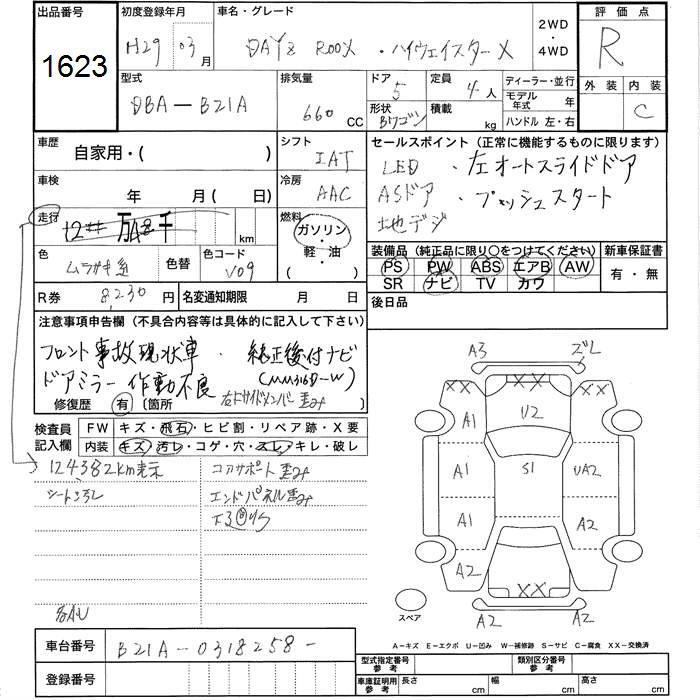 出品番号
1623
初度登録年月
H29 03月
車名・グレード
DAYZ ROOX ・ハイウェイスター X
2WD
・
4WD
評価点
R
外装 内装
C
型式
DBA-B21A
排気量
660 CC
ドア
5
形状
Bワゴン
定員
4人
積載
kg
ディーラー・並行
モデル年式 年
ハンドル 左・右
車歴
自家用・( )
シフト
IAT
セールスポイント (正常に機能するものに限ります)
LED ・左オートスライドドア
ASドア ・プッシュスタート
地デジ
車検
年 月(日)
冷房
AAC
走行
万 千 km
燃料
ガソリン
・
軽・油
( )
色
ムラサキ系
色替
色コード
V09
装備品 (純正品に限り○をつけてください)
PS PW ABS エアB AW
SR ナビ TV カワ
新車保証書
有・無
R券 8,230円
名変通知期限 月 日
後日品
注意事項申告欄 (不具合内容等は具体的に記入して下さい)
フロント事故現状車 ・ 純正後付ナビ
ドアミラー作動不良 (MM316D-W)
修復歴 有 (箇所 右Fサイドメンバー歪み
検査員記入欄
FW キズ・飛石・ヒビ割・リペア跡・X要
内装 キズ・汚レ・コゲ・穴・スレ・キレ・破レ
124,382km表示
コアサポート歪み
シート汚レ
エンドパネル歪み
車台番号 B21A-0318258-
登録番号
A3 ズレ
XX XX
U2
A1 S1 UA2
A1 A2
A2 XX A2
A2 A2
スペア
A-キズ E-エクボ U-凹み W-補修跡 S-サビ C-腐食 XX-交換済
型式指定番号 参考
類別区分番号 参考
車庫証明用 参考 長さ cm 幅 cm 高さ cm